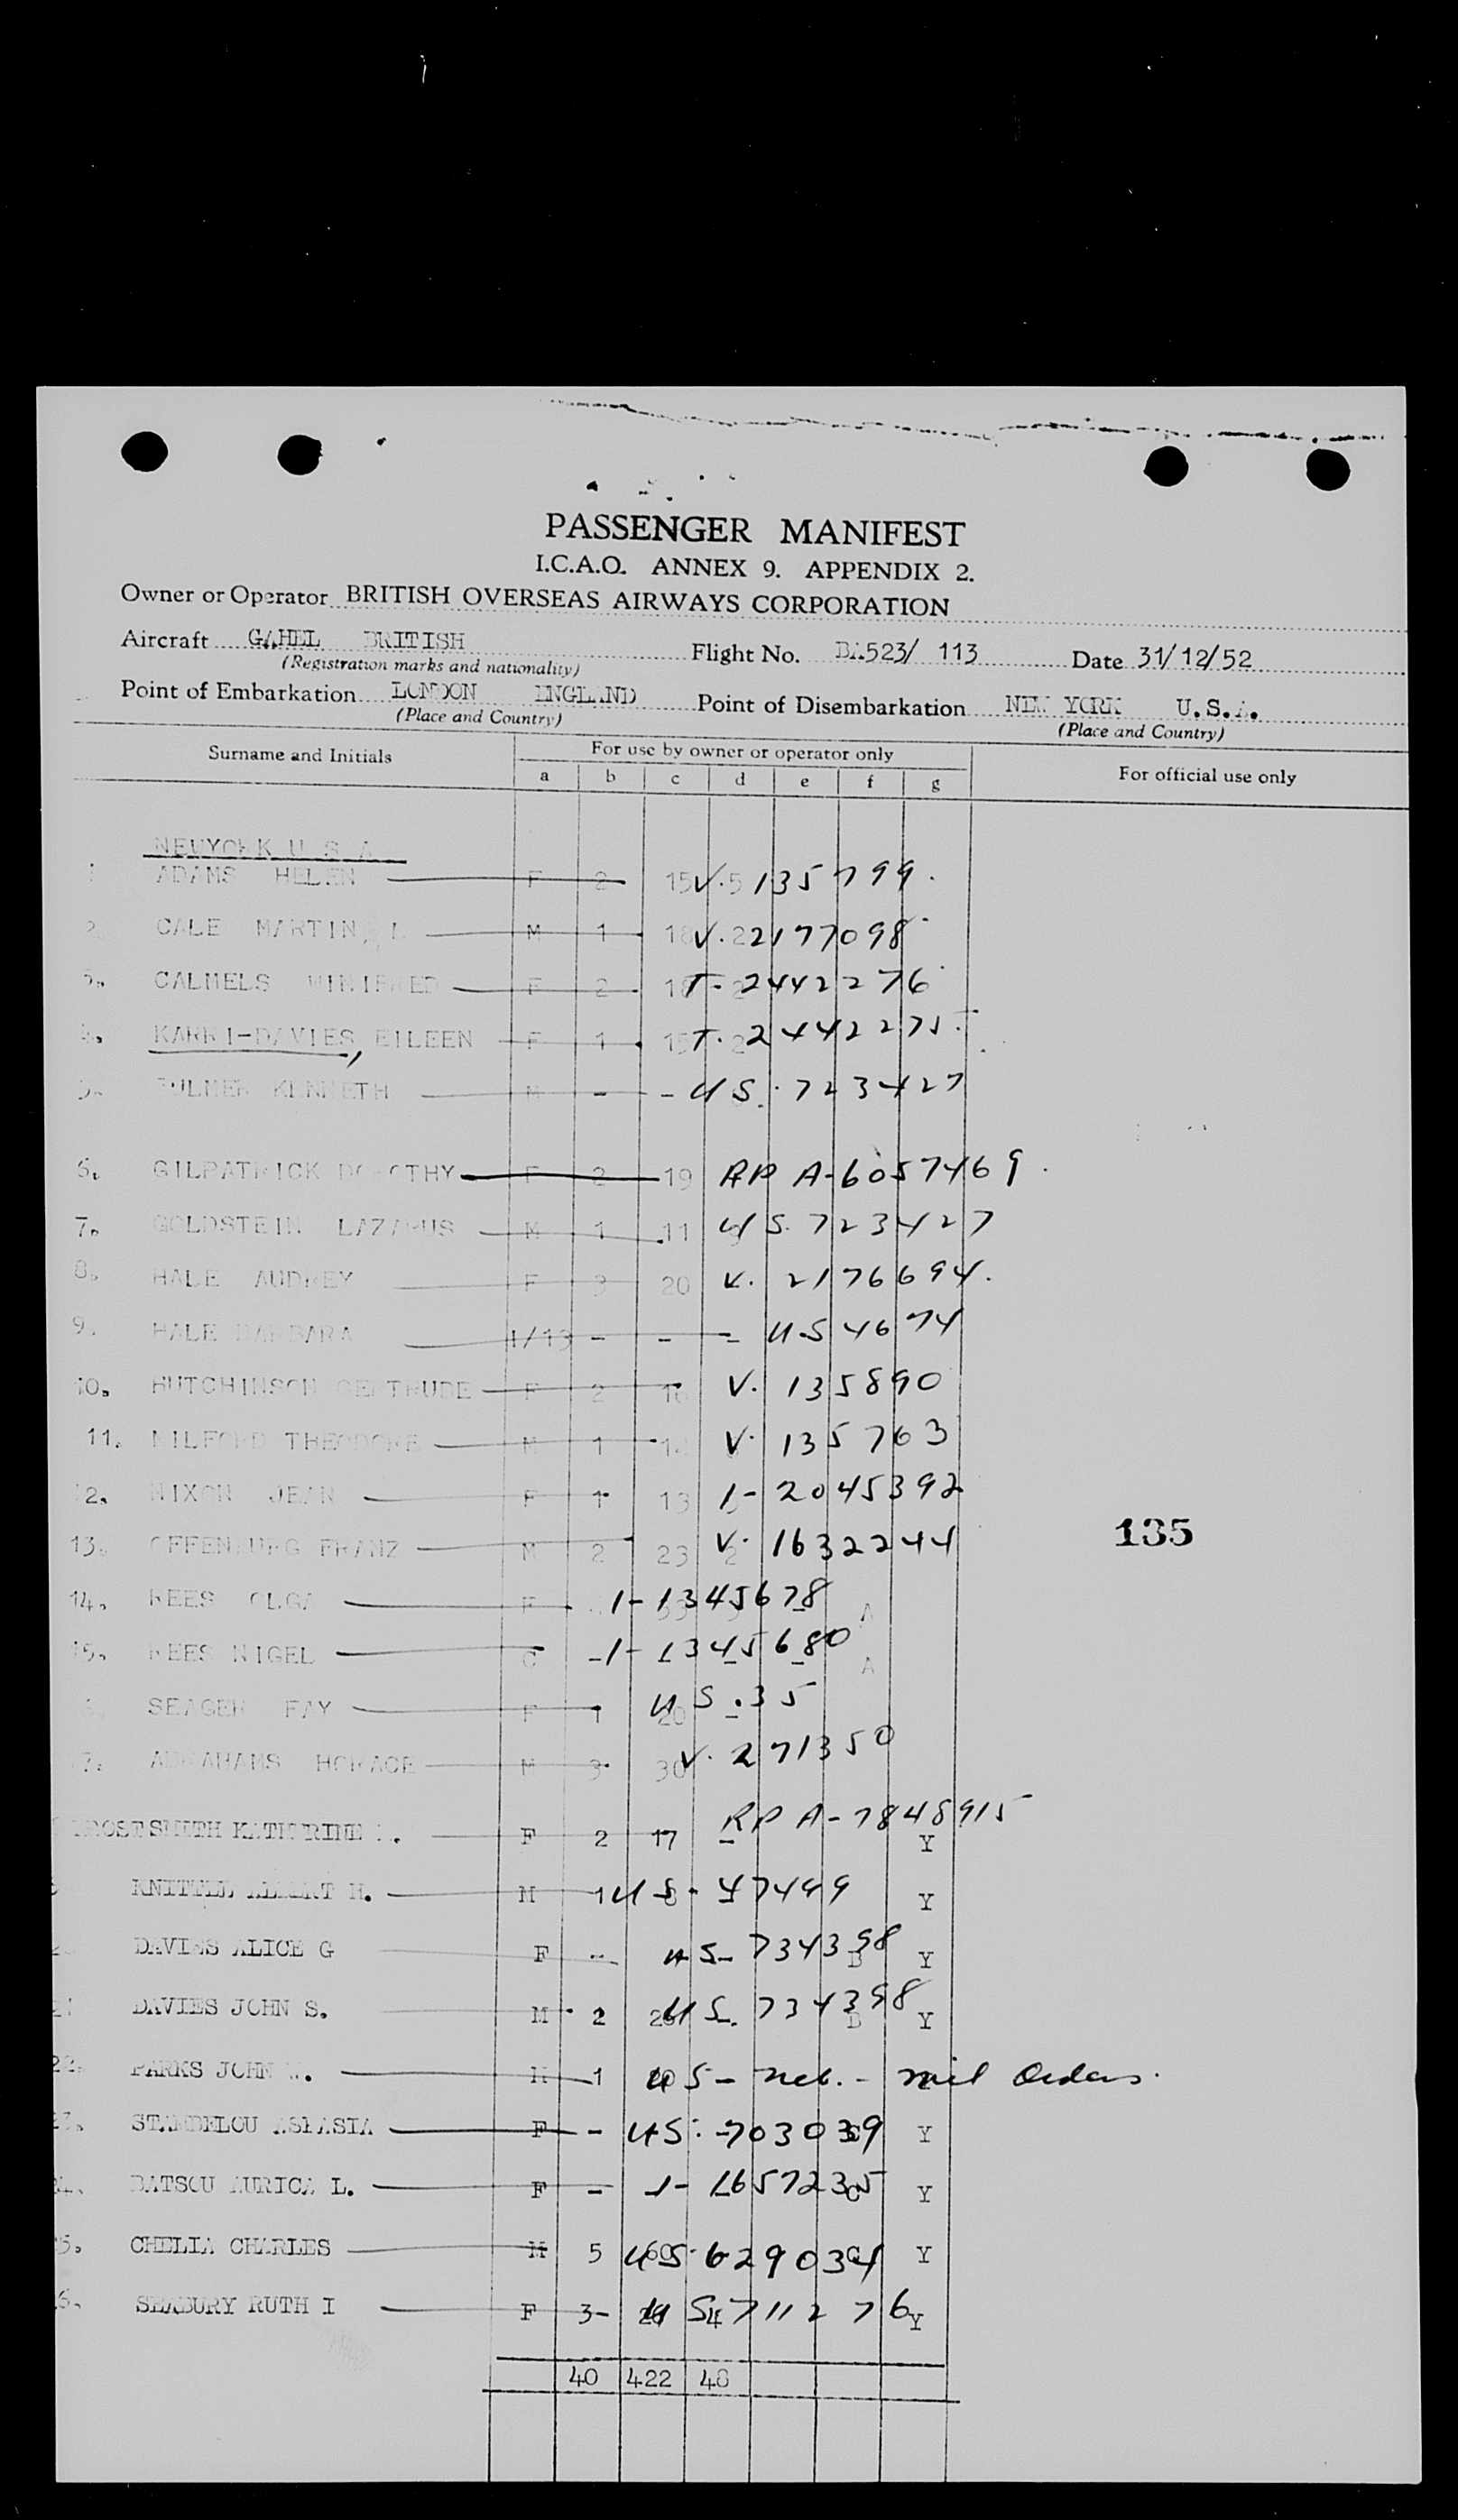 PASSENGER MANIFEST
I.C.A.O. ANNEX 9. APPENDIX 2.
Owner or Operator BRITISH OVERSEAS AIRWAYS CORPORATION
Aircraft GAHEL BRITISH Flight No. BA523/ 113 Date 31/12/52
(Registration marks and nationality)
Point of Embarkation LONDON ENGLAND Point of Disembarkation NEW YORK U.S.A.
(Place and Country) (Place and Country)
Surname and Initials For use by owner or operator only For official use only
a b c d e f g
NEWYORK U S A
ADAMS HELEN F 2 15 V. 135799.
CALE MARTIN M 1 V. 2177098
3. CALMELS WINIFRED F 2 T- 2442276
4. KARRI-DAVIES, EILEEN F 1 T. 2442275.
5. KENNETH M - - US. 723427
6. GILPATRICK DOROTHY F 2 19 RP A-6057469.
7. GOLDSTEIN LAZARUS M 1 11 US. 723427
8. HALE AUDREY F 3 20 V. 2176694.
9. HALE BARBARA 1/13 - - - US 4674
10. HUTCHINSON GERTRUDE F 2 16 V. 135890
11. MILFORD THEODORE M 1 14 V. 135763
12. NIXON JEAN F 1 13 1- 2045392
13. OFFENBURG FRANZ M 2 23 2 V. 1632244
135
14. REES OLGA F 1-1345678 A
15. REES NIGEL C - 1-1345680 A
SEAGER FAY F 1 20 - US.35
ABRAHAMS HORACE M 3 30 V. 271350
SMITH KATHERINE F 2 17 - RP A-7848915 Y
KNITTLE ALBERT H. M 1 US- 47499 Y
DAVIES ALICE G F - US- 734398 B Y
DAVIES JOHN S. M 2 US. 734398 B Y
22. PARKS JOHN W. M 1 US- - mil Orders.
23. ASPASIA F - US. 703039 Y
BATSOU AURICA L. F - 1- 1657235 Y
25. CHELIA CHARLES M 5 US 629034 Y
26. SEABURY RUTH I F 3- US 711276 Y
40 422 48